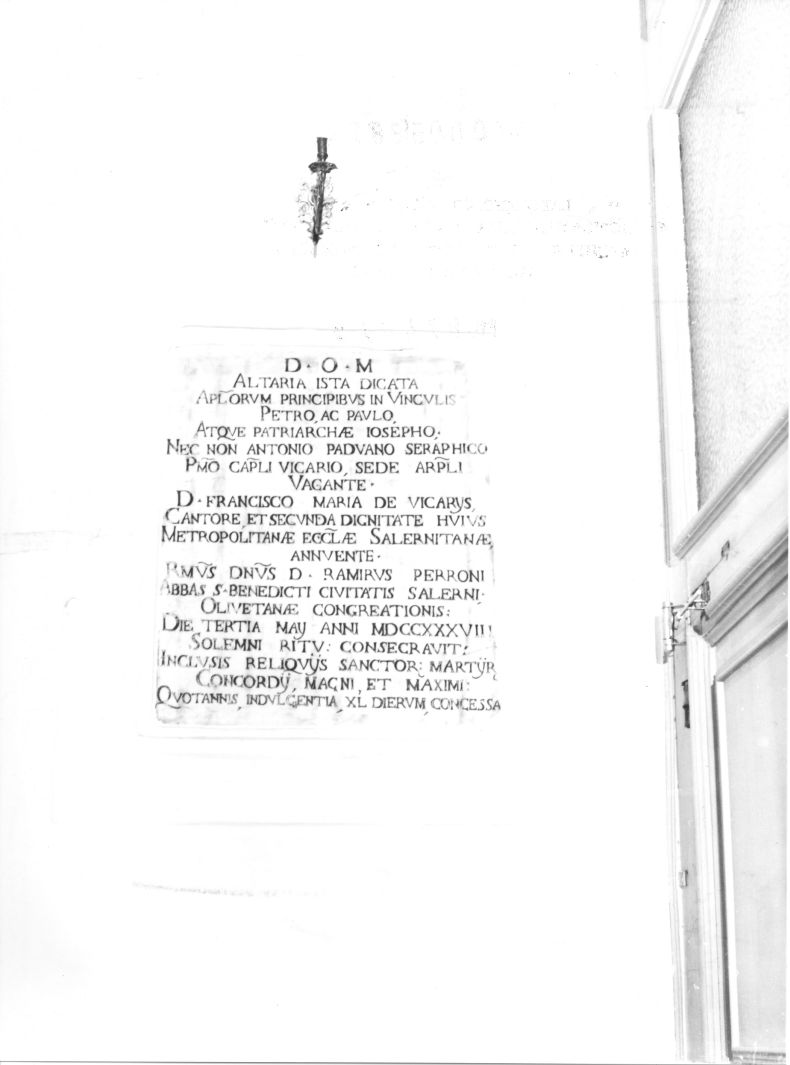 D · O · M
ALTARIA ISTA DICATA
APL̃ORVM PRINCIPIBVS IN VINCVLIS
PETRO, AC PAVLO,
ATQVE PATRIARCHÆ IOSEPHO,
NEC NON ANTONIO PADVANO SERAPHICO
PM̃O CAP̃LI VICARIO, SEDE ARP̃LI
VACANTE ·
D · FRANCISCO MARIA DE VICARIJS,
CANTORE, ET SECVNDA DIGNITATE HVIVS
METROPOLITANÆ ECCL̃Æ SALERNITANÆ,
ANNVENTE ·
RMṼS DNṼS D · RAMIRVS PERRONI
ABBAS S · BENEDICTI CIVITATIS SALERNI ·
OLIVETANÆ CONGREATIONIS :
DIE TERTIA MAIJ ANNI MDCCXXXVIII
SOLEMNI RITV : CONSECRAVIT :
INCLVSIS RELIQVIJS SANCTOR : MARTYR
CONCORDIJ, MAGNI, ET MAXIMI :
QVOTANNIS, INDVLGENTIA, XL DIERVM, CONCESSA